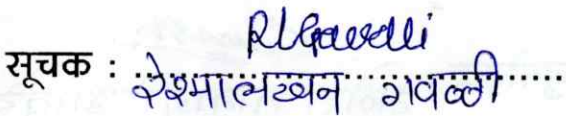 RLGavali
सूचक : रेश्मा लखन गवळी